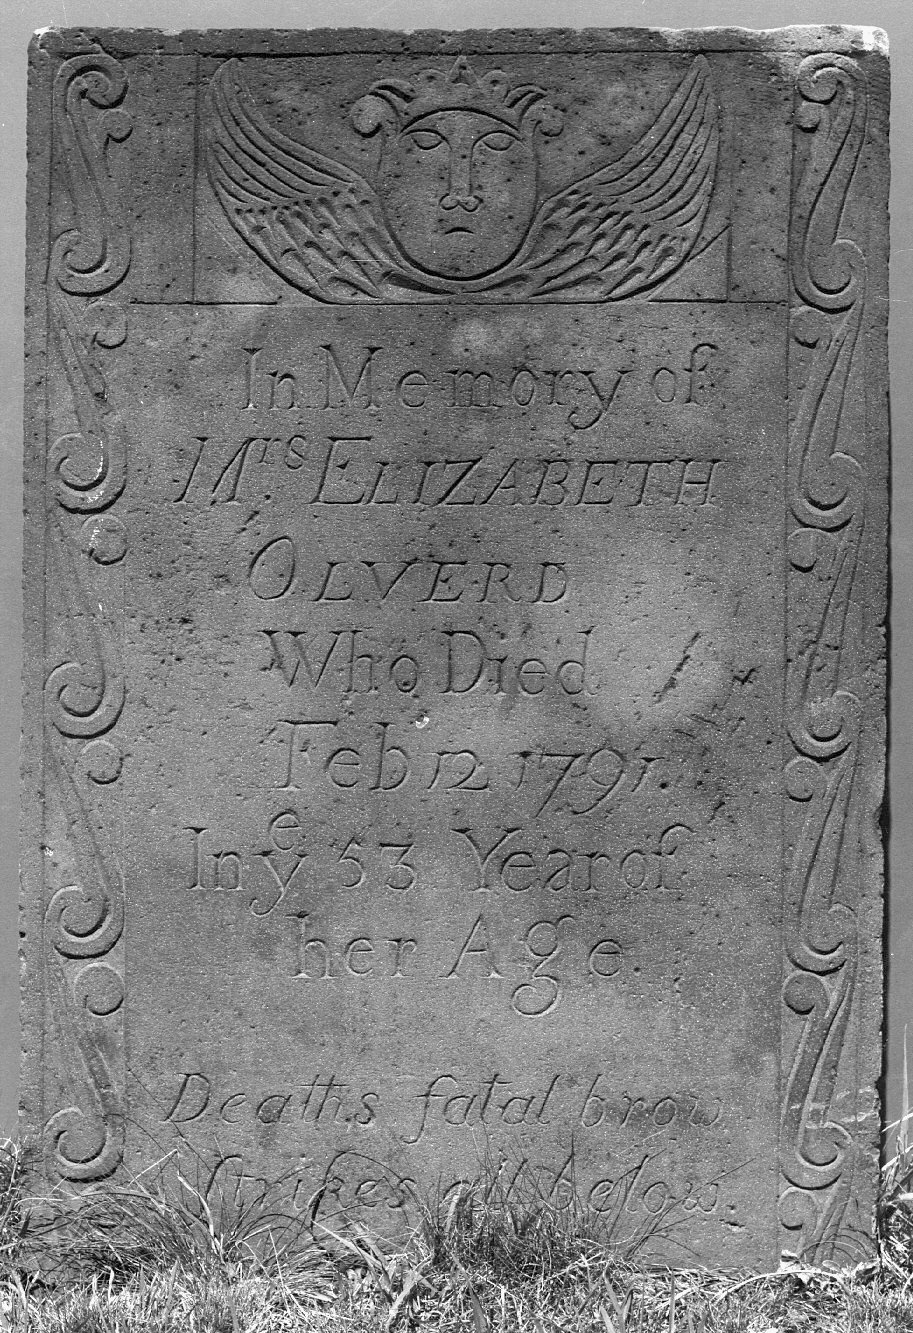 In Memory of
Mrs ELIZABETH
OLVERD
Who Died
Feb 12 1791.
In ye 53 Year of
her Age.
Deaths fatal brow
strikes all below.